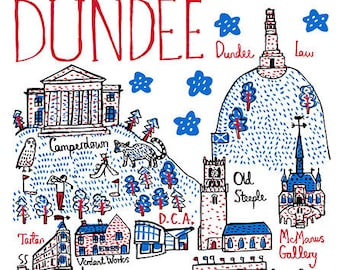 DUNDEE
Dundee Law
Camperdown
Old
Steeple
D.C.A.
McManus
Gallery
Tartan
Verdant Works